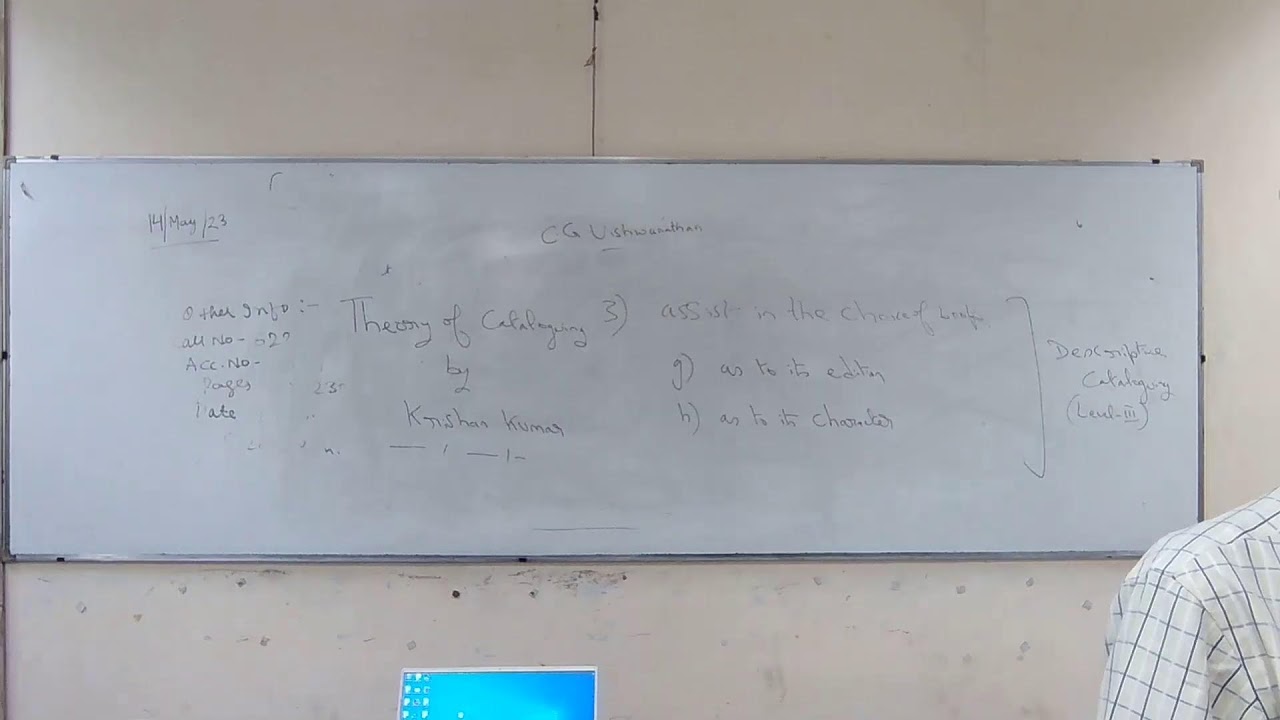 14/May/23
C.G Vishwanathan
Other Info :-
Acc. No -
Pages
Date
Theory of Cataloguing
by
Krishan Kumar
3) assist in the choice of
g) as to its edition
h) as to its character
Descriptive
Cataloguing
(Level-III)